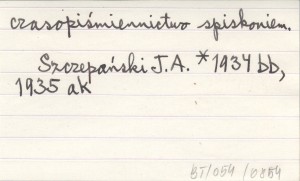 czasopiśmiennictwo spiskoniem.
Szczepański J.A. *1934 bb,
1935 ak
BT/054 /0254